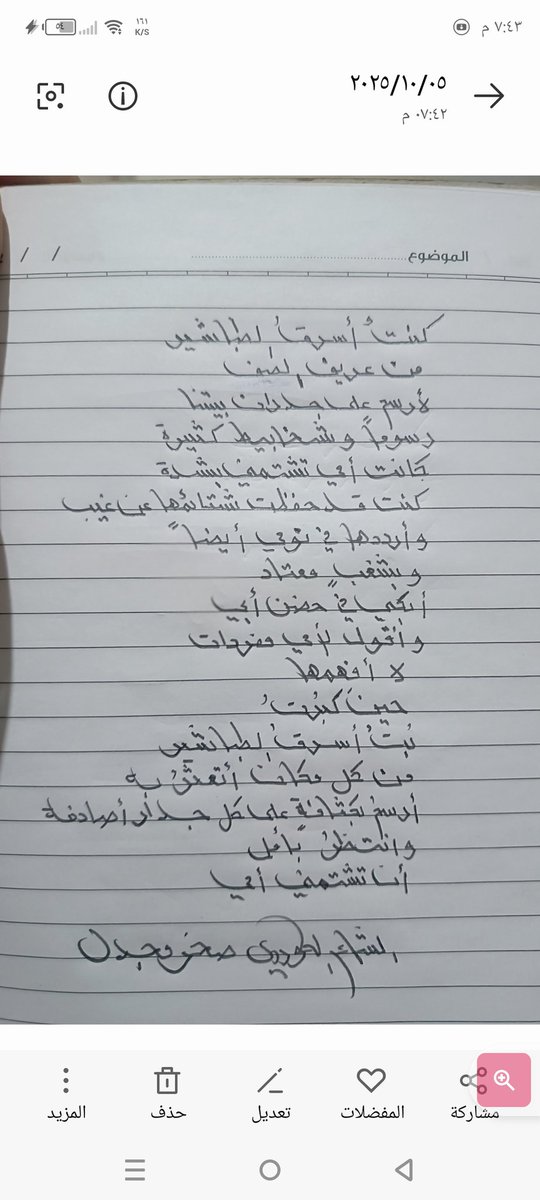 ١٦١
K/S
٥٤
٧:٤٣ م
٢٠٢٥/١٠/٠٥
٠٧:٤٢ م
الموضوع
/ /
كنتُ أسرقُ الطباشير
من عريف الصف
لأرسم على جدران بيتنا
رسوماً وشخابيط كثيرة
كانت أمي تشتمني بشدة
كنت قد حفظت شتائمها عن غيب
وأرددها في نومي أيضاً
وبشغبٍ معتاد
أبكي في حضن أبي
وأقول لأمي مفردات
لا أفهمها
حين كبرتُ
بُتُ أسرقُ الطباشير
من كل مكان أتعثّرُ به
أرسمُ بكثافة على كل جدار أصادفه
وانتظرُ بأمل
أن تشتمني أمي
الشاعر السوري صخر
المزيد
حذف
تعديل
المفضلات
مشاركة